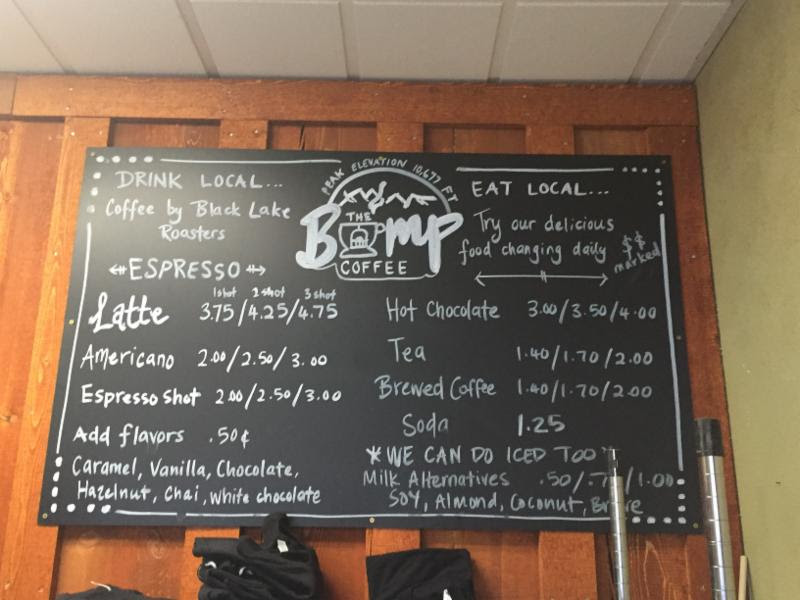 DRINK LOCAL...
Coffee by Black Lake
Roasters
ESPRESSO
1shot 2shot 3shot
Latte 3.75/4.25/4.75
Americano 2.00/2.50/3.00
Espresso Shot 2.00/2.50/3.00
Add flavors .50¢
Caramel, Vanilla, Chocolate,
Hazelnut, Chai, White chocolate
PEAK ELEVATION 10,677 FT
THE
Bomp
COFFEE
EAT LOCAL...
Try our delicious
food changing daily
marked
Hot Chocolate 3.00/3.50/4.00
Tea 1.40/1.70/2.00
Brewed Coffee 1.40/1.70/2.00
Soda 1.25
*WE CAN DO ICED TOO*
Milk Alternatives .50/.7 /1.00
Soy, Almond, Coconut,